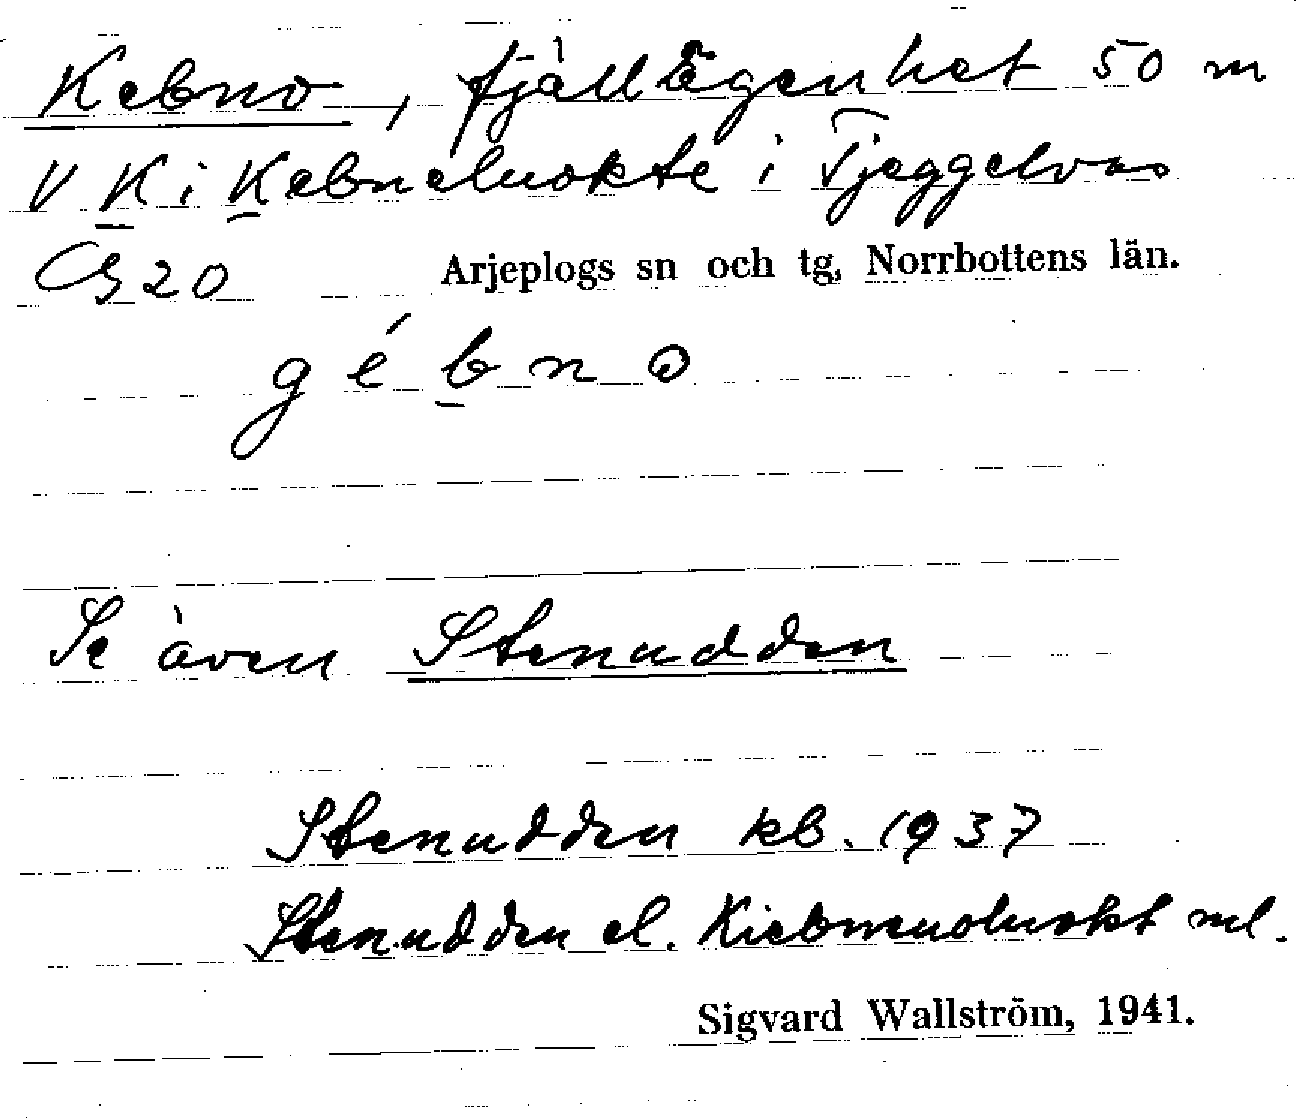 Kebno, fjällägenhet 50 m
V K i Kebneluokte i Tjeggelvas
G 20 Arjeplogs sn och tg, Norrbottens län.
gébno
Se även Stenudden
Stenudden kb. 1937
Stenudden el. Kiebmenoluokt ml.
Sigvard Wallström, 1941.